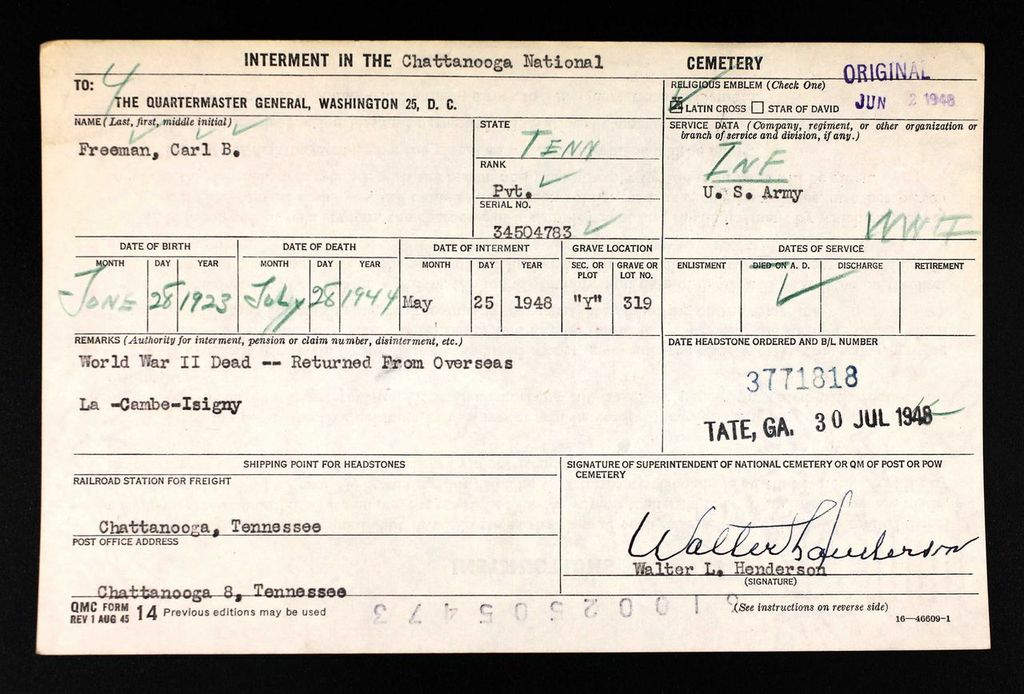 INTERMENT IN THE Chattanooga National CEMETERY
ORIGINAL
JUN 2 1948
TO: 4
THE QUARTERMASTER GENERAL, WASHINGTON 25, D. C.
RELIGIOUS EMBLEM (Check One)
LATIN CROSS STAR OF DAVID
NAME (Last, first, middle initial)
Freeman, Carl B.
STATE
TENN
RANK
Pvt.
SERIAL NO.
34504783
SERVICE DATA (Company, regiment, or other organization or branch of service and division, if any.)
INF
U. S. Army
WWII
DATE OF BIRTH DATE OF DEATH DATE OF INTERMENT GRAVE LOCATION DATES OF SERVICE
MONTH DAY YEAR MONTH DAY YEAR MONTH DAY YEAR SEC. OR PLOT GRAVE OR LOT NO. ENLISTMENT DIED ON A. D. DISCHARGE RETIREMENT
JUNE 28 1923 July 28 1944 May 25 1948 "Y" 319
REMARKS (Authority for interment, pension or claim number, disinterment, etc.)
World War II Dead -- Returned From Overseas
La -Cambe-Isigny
DATE HEADSTONE ORDERED AND B/L NUMBER
3771818
TATE, GA. 30 JUL 1948
SHIPPING POINT FOR HEADSTONES
RAILROAD STATION FOR FREIGHT
Chattanooga, Tennessee
POST OFFICE ADDRESS
Chattanooga 8, Tennessee
SIGNATURE OF SUPERINTENDENT OF NATIONAL CEMETERY OR QM OF POST OR POW CEMETERY
Walter L Henderson
Walter L. Henderson
(SIGNATURE)
QMC FORM
REV 1 AUG 45 14 Previous editions may be used
(See instructions on reverse side)
16—46609-1